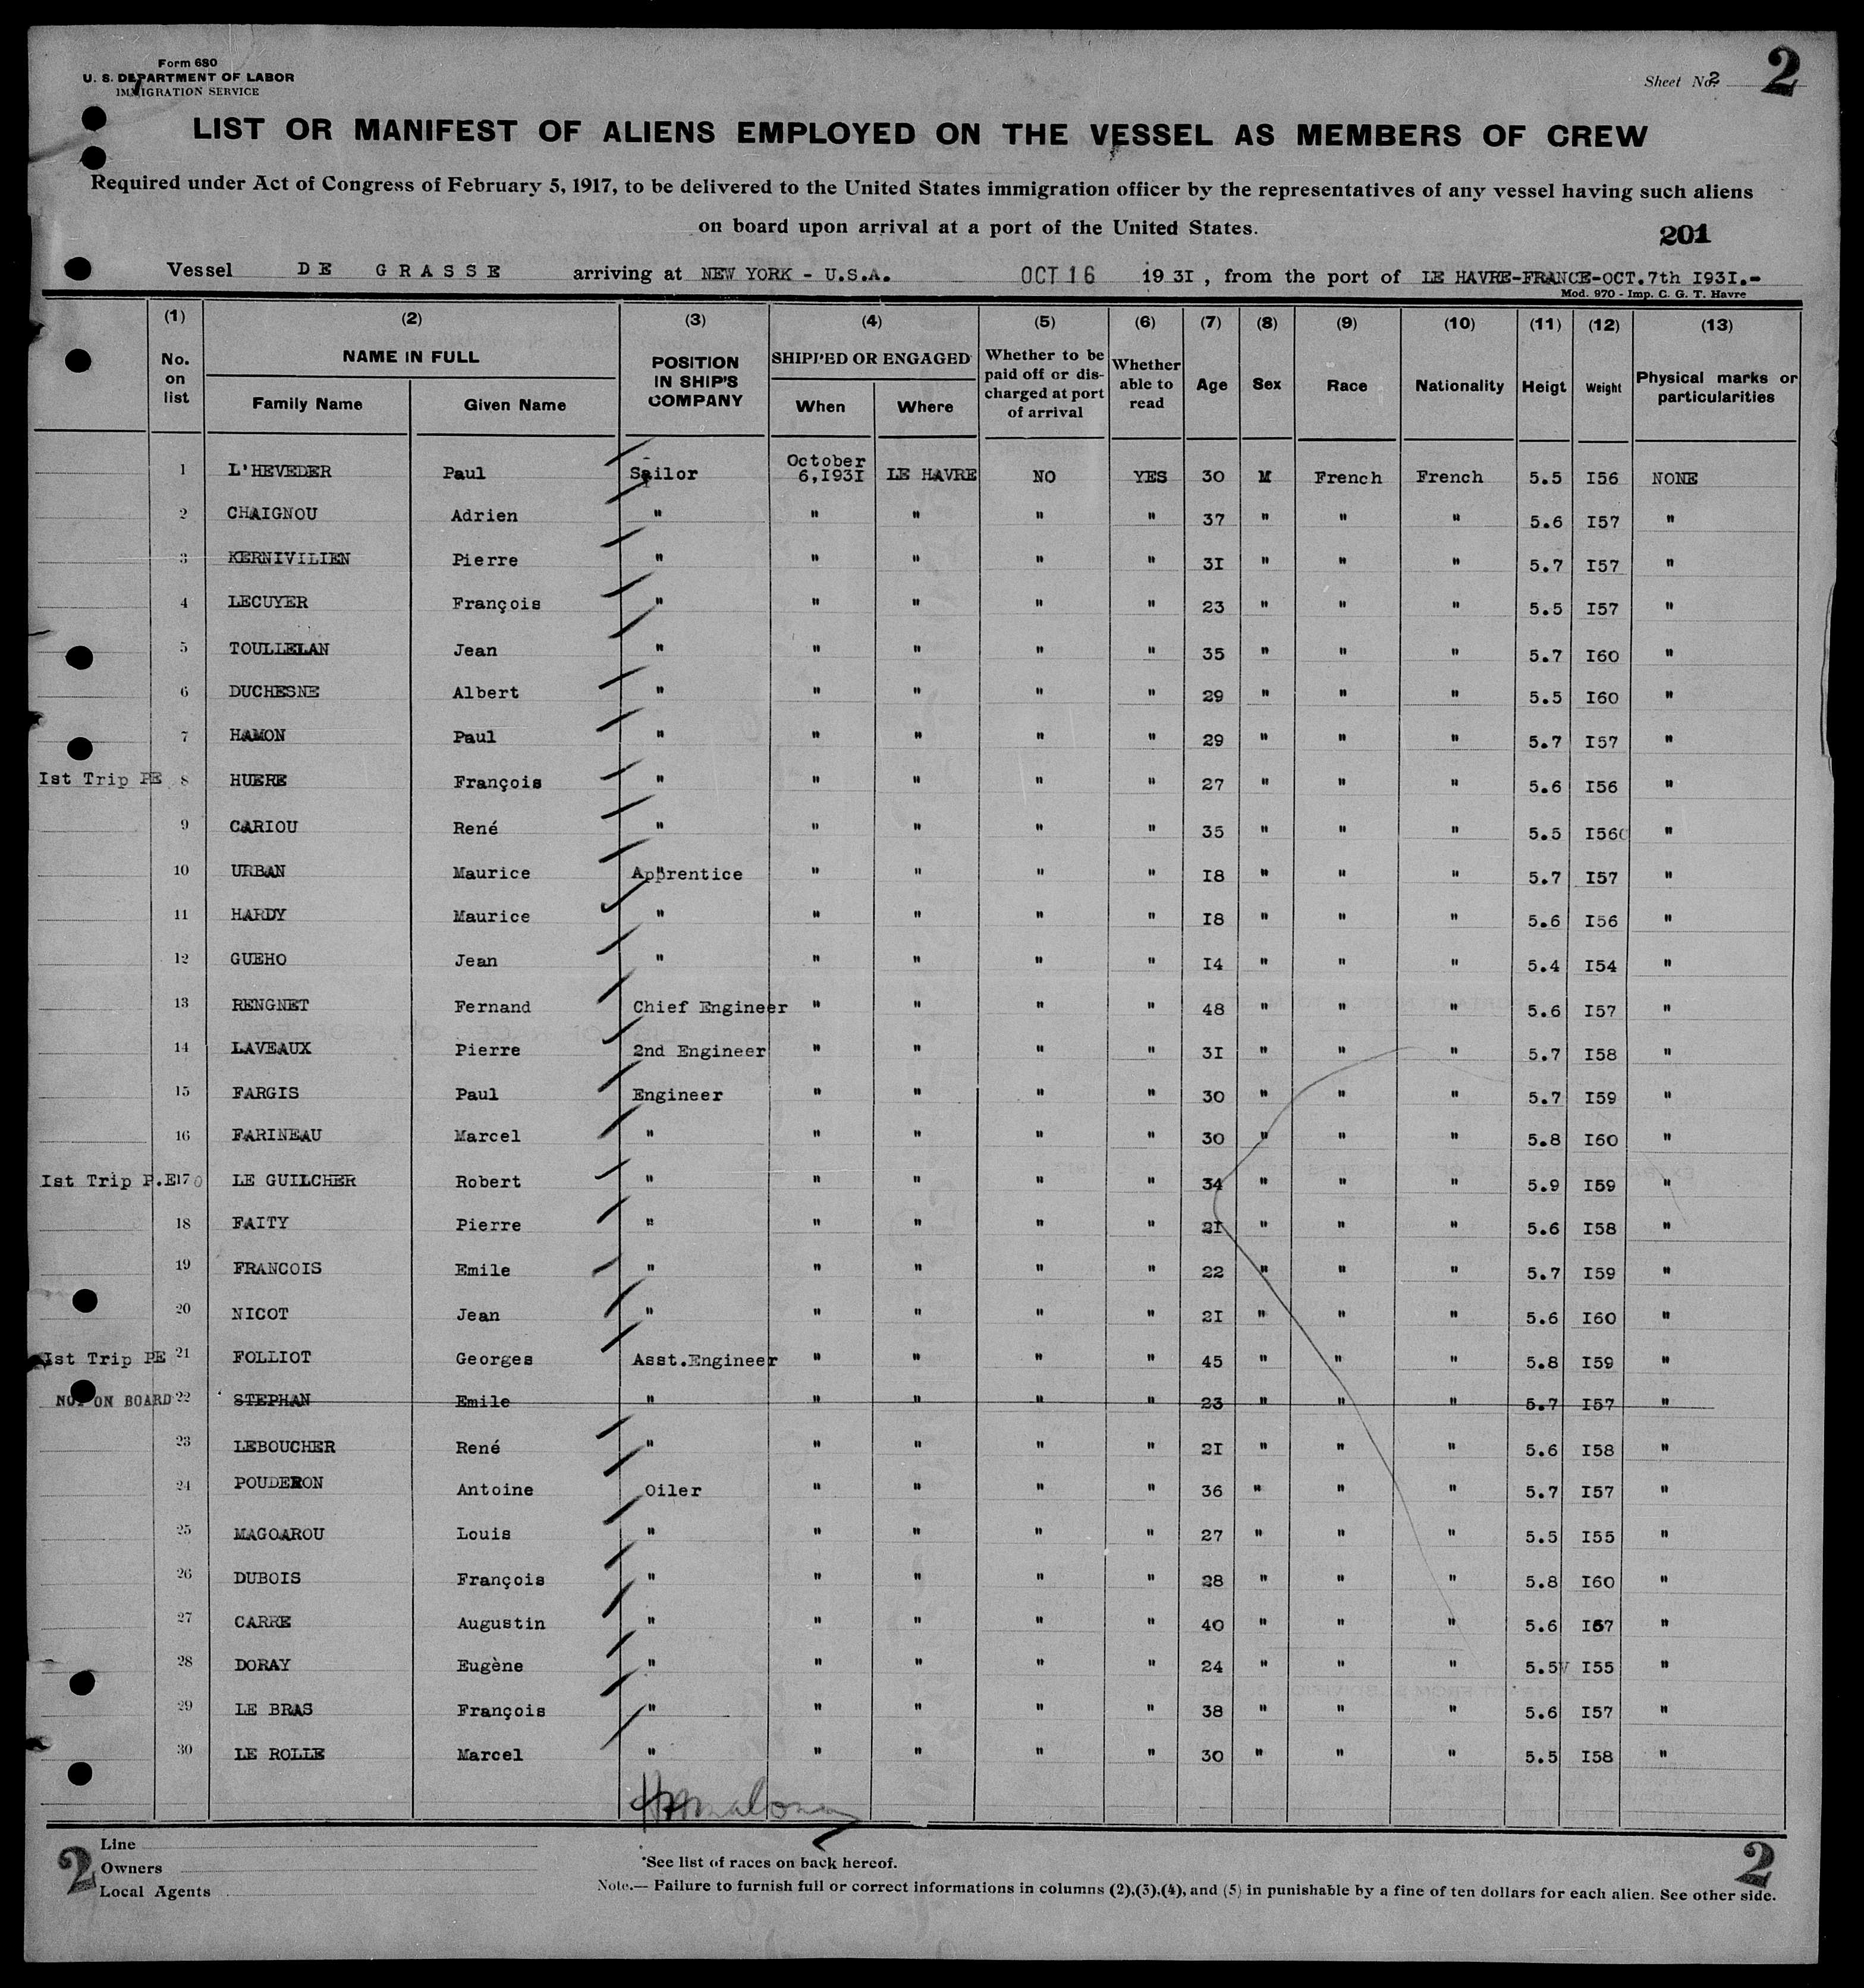 Form 680
U. S. DEPARTMENT OF LABOR
IMMIGRATION SERVICE
Sheet No. 2
2
LIST OR MANIFEST OF ALIENS EMPLOYED ON THE VESSEL AS MEMBERS OF CREW
Required under Act of Congress of February 5, 1917, to be delivered to the United States immigration officer by the representatives of any vessel having such aliens
on board upon arrival at a port of the United States.
201
Vessel DE GRASSE arriving at NEW YORK - U.S.A. OCT 16 1931, from the port of LE HAVRE-FRANCE-OCT.7th I93I.-
Mod. 970 - Imp. C. G. T. Havre
(1) (2) (3) (4) (5) (6) (7) (8) (9) (10) (11) (12) (13)
No. on list NAME IN FULL Family Name Given Name POSITION IN SHIP'S COMPANY SHIPPED OR ENGAGED When Where Whether to be paid off or discharged at port of arrival Whether able to read Age Sex Race Nationality Heigt Weight Physical marks or particularities
1 L'HEVEDER Paul Sailor October 6,I93I LE HAVRE NO YES 30 M French French 5.5 I56 NONE
2 CHAIGNOU Adrien " " " " " 37 " " " 5.6 I57 "
3 KERNIVILIEN Pierre " " " " " 3I " " " 5.7 I57 "
4 LECUYER François " " " " " 23 " " " 5.5 I57 "
5 TOULLELAN Jean " " " " " 35 " " " 5.7 I60 "
6 DUCHESNE Albert " " " " " 29 " " " 5.5 I60 "
7 HAMON Paul " " " " " 29 " " " 5.7 I57 "
Ist Trip PE 8 HUERE François " " " " " 27 " " " 5.6 I56 "
9 CARIOU René " " " " " 35 " " " 5.5 I56 "
10 URBAN Maurice Apprentice " " " " I8 " " " 5.7 I57 "
11 HARDY Maurice " " " " " I8 " " " 5.6 I56 "
12 GUEHO Jean " " " " " I4 " " " 5.4 I54 "
13 RENGNET Fernand Chief Engineer " " " " 48 " " " 5.6 I57 "
14 LAVEAUX Pierre 2nd Engineer " " " " 3I " " " 5.7 I58 "
15 FARGIS Paul Engineer " " " " 30 " " " 5.7 I59 "
16 FARINEAU Marcel " " " " " 30 " " " 5.8 I60 "
Ist Trip P.E 17 LE GUILCHER Robert " " " " " 34 " " " 5.9 I59 "
18 FAITY Pierre " " " " " 2I " " " 5.6 I58 "
19 FRANCOIS Emile " " " " " 22 " " " 5.7 I59 "
20 NICOT Jean " " " " " 2I " " " 5.6 I60 "
Ist Trip PE 21 FOLLIOT Georges Asst.Engineer " " " " 45 " " " 5.8 I59 "
NOT ON BOARD 22 STEPHAN Emile " " " " " 23 " " " 5.7 I57 "
23 LEBOUCHER René " " " " " 2I " " " 5.6 I58 "
24 POUDERON Antoine Oiler " " " " 36 " " " 5.7 I57 "
25 MAGOAROU Louis " " " " " 27 " " " 5.5 I55 "
26 DUBOIS François " " " " " 28 " " " 5.8 I60 "
27 CARRE Augustin " " " " " 40 " " " 5.6 I57 "
28 DORAY Eugène " " " " " 24 " " " 5.5 I55 "
29 LE BRAS François " " " " " 38 " " " 5.6 I57 "
30 LE ROLLE Marcel " " " " " 30 " " " 5.5 I58 "
2
Line
Owners
Local Agents
*See list of races on back hereof.
Note.— Failure to furnish full or correct informations in columns (2),(3),(4), and (5) in punishable by a fine of ten dollars for each alien. See other side.
2